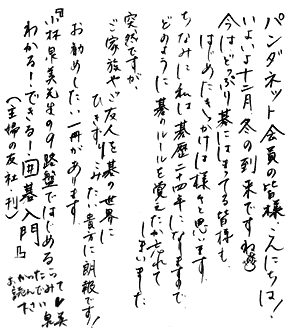 パンダネット会員の皆様、こんにちは!
いよいよ十二月、冬の到来ですね
今はどっぷり碁にはまってる皆様も、
はじめたきっかけは様々と思います。
ちなみに私は碁歴二十四年になりますので
どのように碁のルールを覚えたか忘れて
しまいました
突然ですが、
ご家族やご友人を碁の世界に
ひきずりこみたい貴方に朗報です!
お勧めしたい一冊があります。
『小林泉美先生の9路盤ではじめる
わかる!できる!囲碁入門』
(主婦の友社刊)
よかったら
読んでみて
下さい 泉美